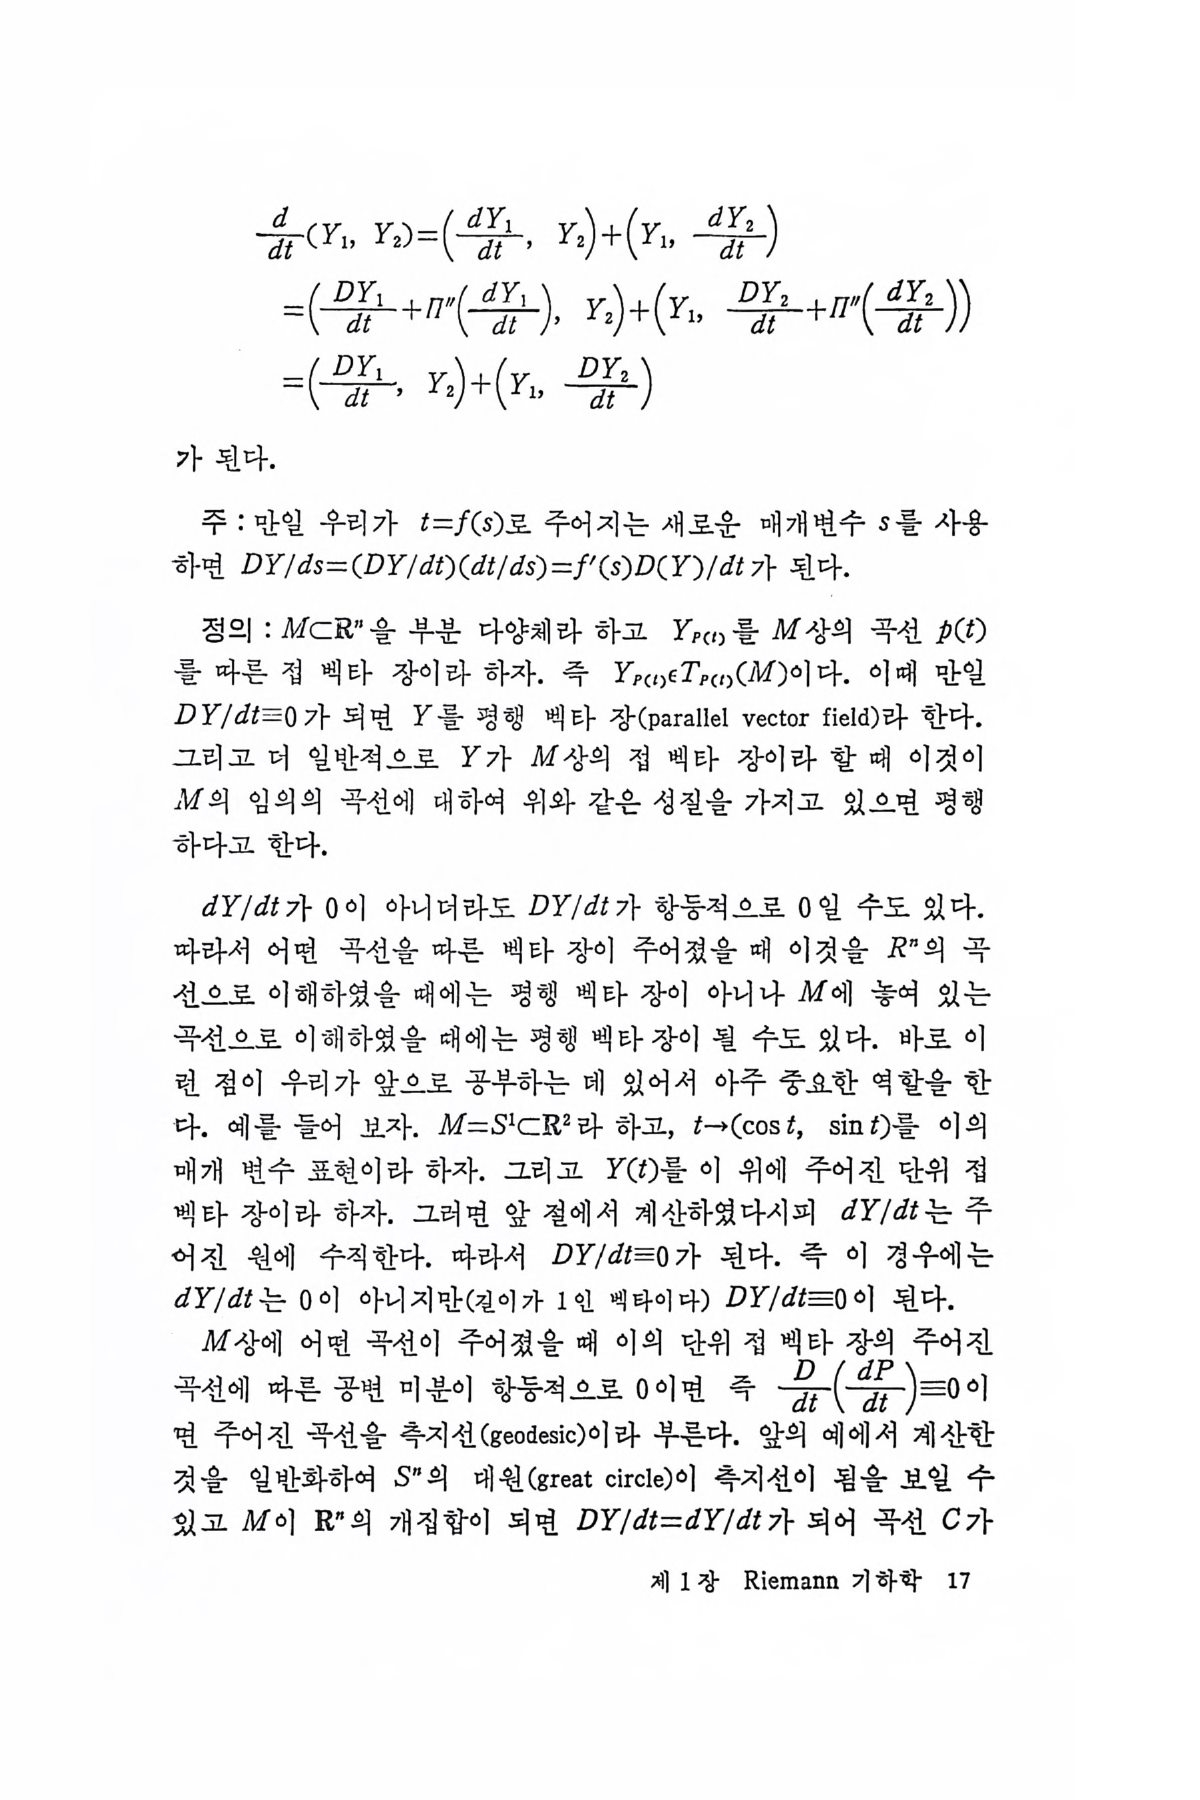 d/dt(Y₁, Y₂)=(dY₁/dt, Y₂)+(Y₁, dY₂/dt)
=(DY₁/dt+Π″(dY₁/dt), Y₂)+(Y₁, DY₂/dt+Π″(dY₂/dt))
=(DY₁/dt, Y₂)+(Y₁, DY₂/dt)
가 된다.
주 : 만일 우리가 t=f(s)로 주어지는 새로운 매개변수 s를 사용
하면 DY/ds=(DY/dt)(dt/ds)=f′(s)D(Y)/dt가 된다.
정의 : M⊂Rⁿ을 부분 다양체라 하고 Y_P(t)를 M상의 곡선 p(t)
를 따른 접 벡타 장이라 하자. 즉 Y_P(t)∈T_P(t)(M)이다. 이때 만일
DY/dt≡0가 되면 Y를 평행 벡타 장(parallel vector field)라 한다.
그리고 더 일반적으로 Y가 M상의 접 벡타 장이라 할 때 이것이
M의 임의의 곡선에 대하여 위와 같은 성질을 가지고 있으면 평행
하다고 한다.
dY/dt가 0이 아니더라도 DY/dt가 항등적으로 0일 수도 있다.
따라서 어떤 곡선을 따른 벡타 장이 주어졌을 때 이것을 Rⁿ의 곡
선으로 이해하였을 때에는 평행 벡타 장이 아니나 M에 놓여 있는
곡선으로 이해하였을 때에는 평행 벡타 장이 될 수도 있다. 바로 이
런 점이 우리가 앞으로 공부하는 데 있어서 아주 중요한 역할을 한
다. 예를 들어 보자. M=S¹⊂R²라 하고, t→(cos t, sin t)를 이의
매개 변수 표현이라 하자. 그리고 Y(t)를 이 위에 주어진 단위 접
벡타 장이라 하자. 그러면 앞 절에서 계산하였다시피 dY/dt는 주
어진 원에 수직한다. 따라서 DY/dt≡0가 된다. 즉 이 경우에는
dY/dt는 0이 아니지만(길이가 1인 벡타이다) DY/dt≡0이 된다.
M상에 어떤 곡선이 주어졌을 때 이의 단위 접 벡타 장의 주어진
곡선에 따른 공변 미분이 항등적으로 0이면 즉 D/dt(dP/dt)≡0이
면 주어진 곡선을 측지선(geodesic)이라 부른다. 앞의 예에서 계산한
것을 일반화하여 Sⁿ의 대원(great circle)이 측지선이 됨을 보일 수
있고 M이 Rⁿ의 개집합이 되면 DY/dt=dY/dt가 되어 곡선 C가
제 1 장 Riemann 기하학 17